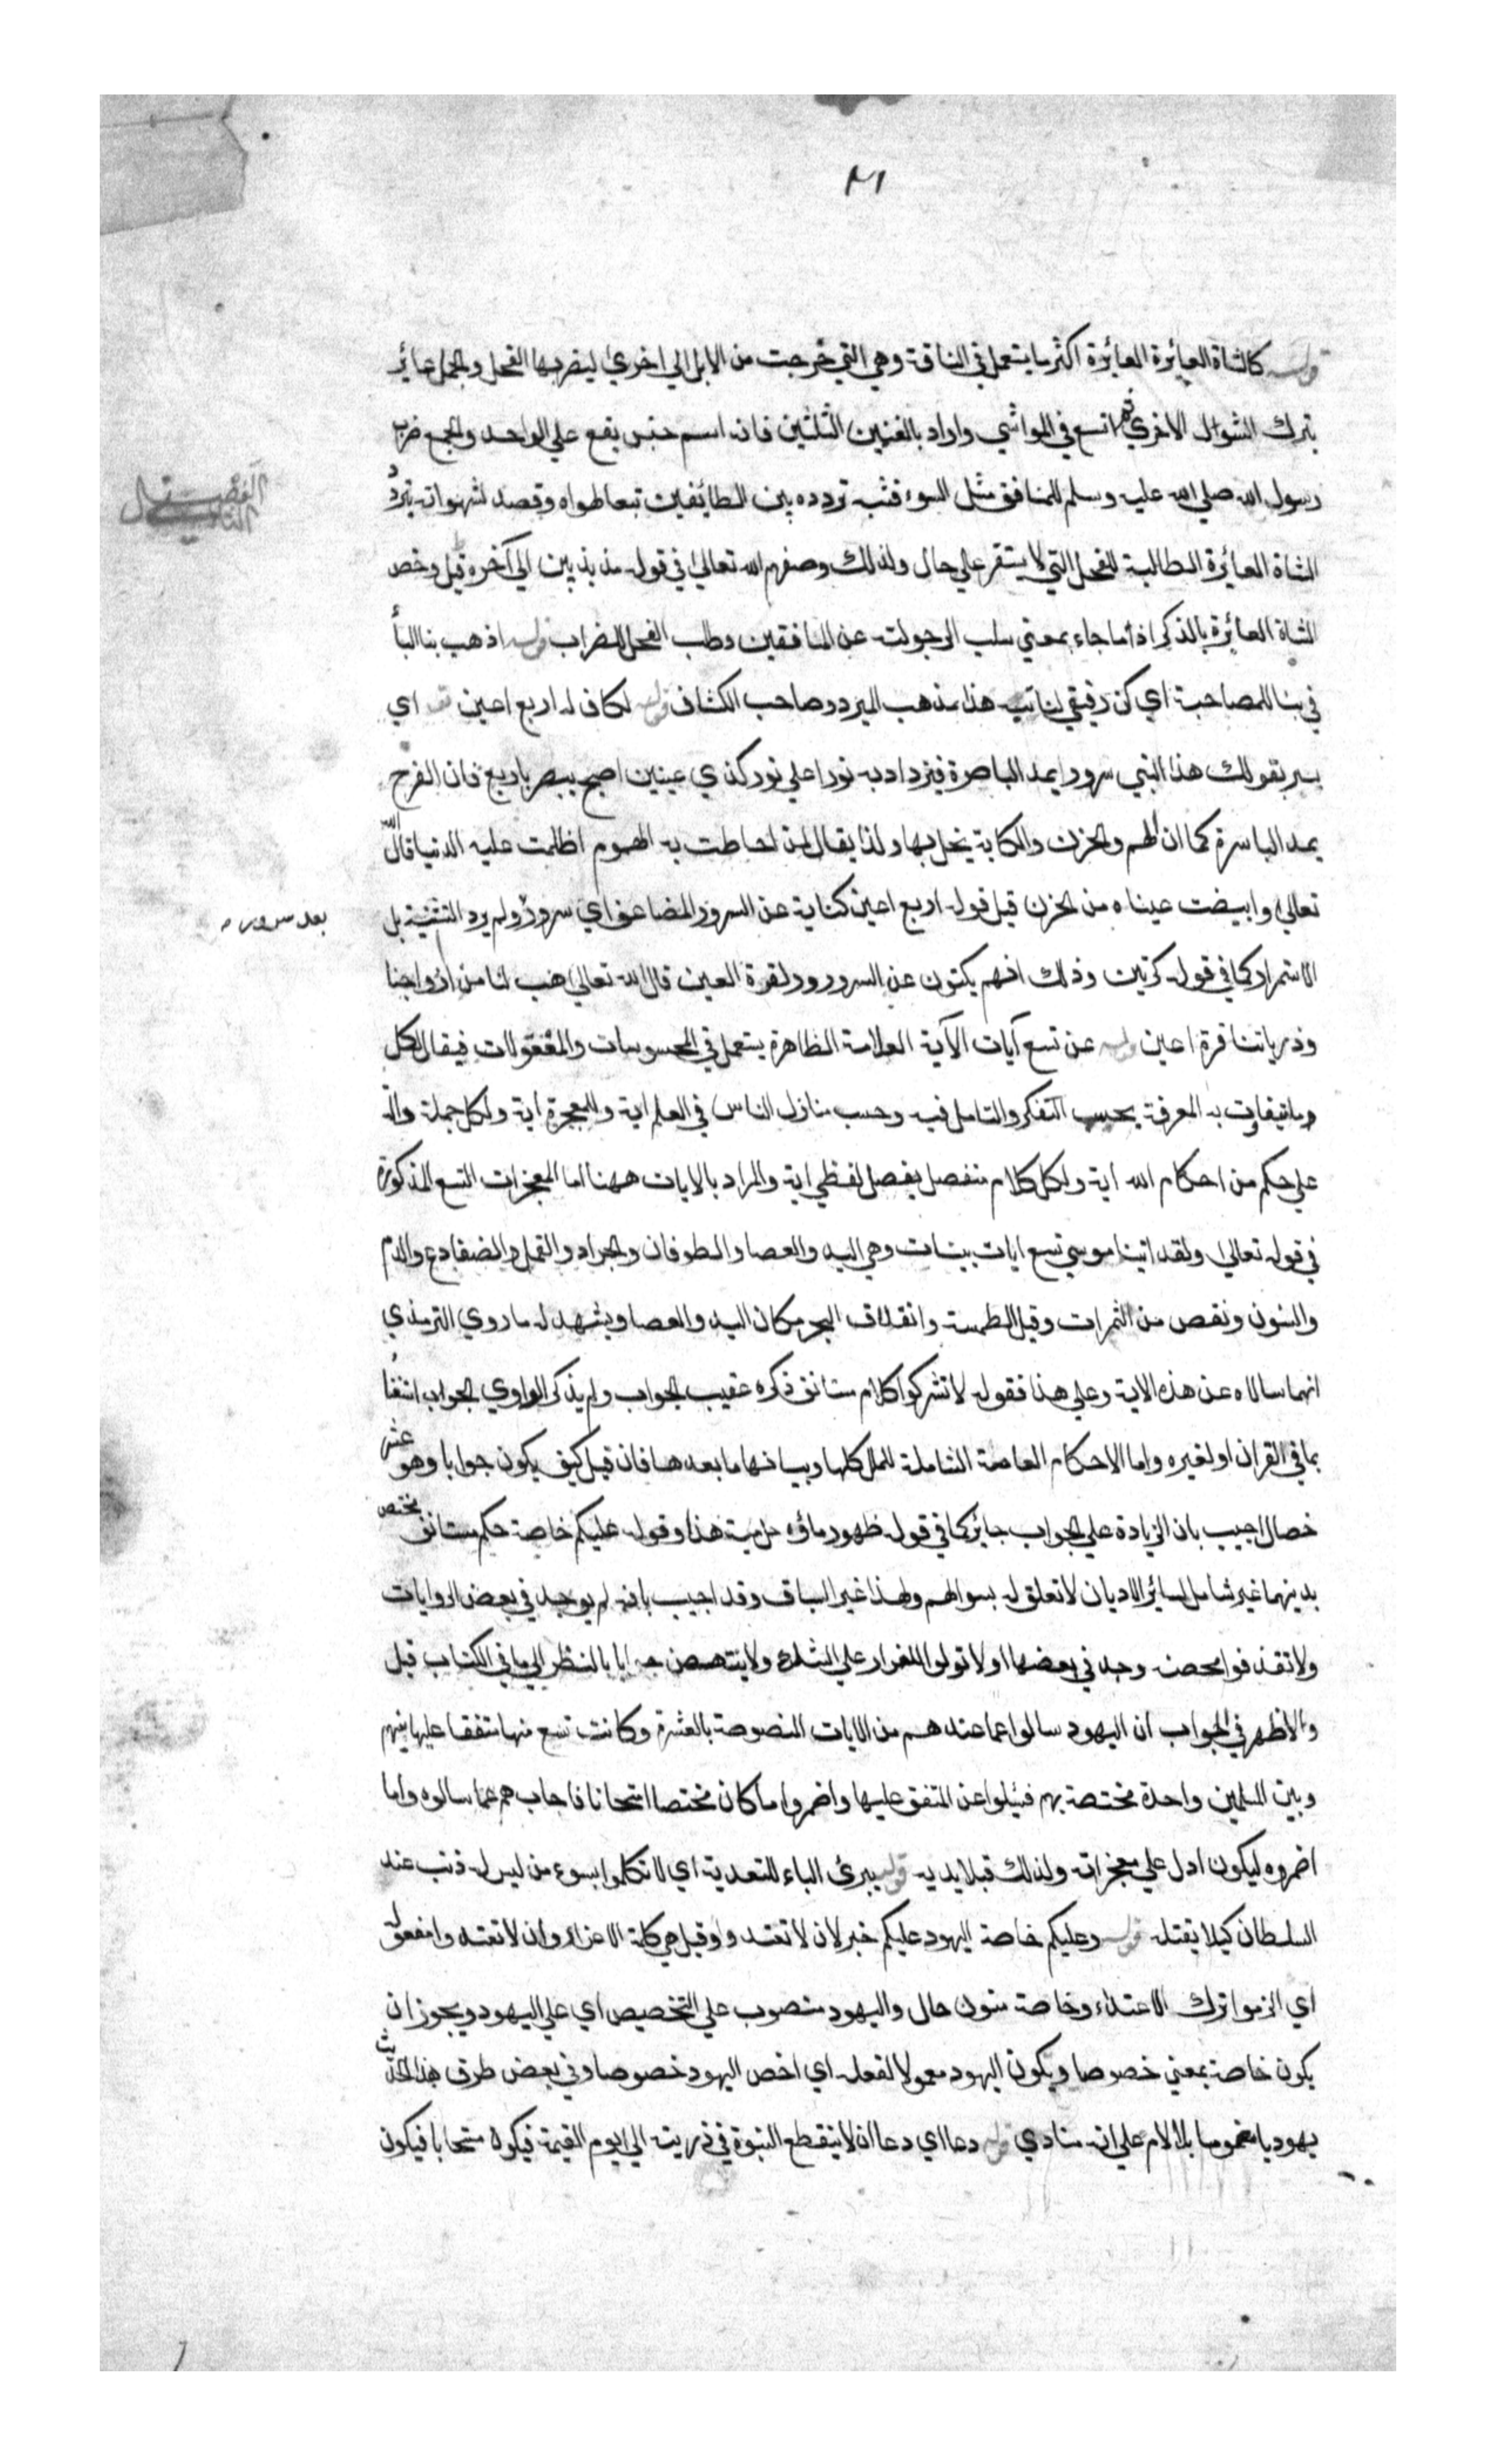 ٣١
قوله كالشاة العايرة العايرة اكثر ما يستعمل في الناقة وهي التي خرجت من الابل الي اخري ليضربها الفحل والجمل عاير
يترك الشوال الاخري ثم اتسع في المواشي واراد بالغنمين الثلثين فانه اسم جنس يقع علي الواحد والجمع ضرب
الفصل الثاني
رسول الله صلي الله عليه وسلم للمنافق مثل السوء فشبه تردده بين الطايفين تبعا لهواه وقصد لشهواته بتردد
الشاة العايرة الطالبة للفحل التي لا يستقر علي حال ولذلك وصفهم الله تعالي في قوله مذبذبين الي آخره قيل وخص
الشاة العايرة بالذكر اذ اما جاء بمعني سلب الرجولة عن المنافقين وطلب الفحل للضراب قوله اذهب بنا البأ
في بنا للمصاحبة اي كن رفيقي لناتيه هذا مذهب المبرد وصاحب الكشاف قوله لكان له اربع اعين اي
يسر بقولك هذا النبي سرورا يمد الباصرة فيزداد به نورا علي نور كذي عينين اصبح يبصر باربع فان الفرح
يمد الباسرة كما ان الهم والحزن والكابة يخل بها ولذا يقال لمن احاطت به الهموم اظلمت عليه الدنيا قال الله
تعالي وابيضت عيناه من الحزن قيل قوله اربع اعين كناية عن السرور المضاعف اي سرور ولم يرد التثنية بل
بعد سرور
الاستمرار كما في قوله كرتين وذلك انهم يكنون عن السرور ود لقرة العين قال الله تعالي هب لنا من ازواجنا
وذرياتنا قرة اعين قوله عن تسع آيات الآية العلامة الظاهرة يستعمل في المحسوسات والمعقولات فيقال لكل
وما يتفاوت به المعرفة بحسب التفكر والتامل فيه وحسب منازل الناس في العلم اية وللمعجزة اية ولكل جملة دالة
علي حكم من احكام الله اية ولكل كلام منفصل بفصل لفظي اية والمراد بالايات ههنا اما المعجزات التسع المذكورة
في قوله تعالي ولقد اتينا موسي تسع ايات بينات وهي اليد والعصا والطوفان والجراد والقمل والضفادع والدم
والسنون ونقص من الثمرات وقيل الطمسة وانفلاق البحر مكان اليد والعصا ويشهد له ما روي الترمذي
انهما سالاه عن هذه الاية وعلي هذا فقوله لا تشركوا كلام مستانف ذكره عقيب الجواب ولم يذكر الراوي الجواب اشتغا
بما في القران او لغيره واما الاحكام العامة الشاملة للملل كلها وبيانها ما بعدها فان قيل كيف يكون جوابا وهو عشر
خصال اجيب بان الزيادة علي الجواب جايز كما في قوله طهور ماؤه حل ميتة هذا وقوله عليكم خاصة حكم مستانف مختص
بدينهما غير شامل لسائر الاديان لا تعلق له بسوالهم ولهذا غير السياق وقد اجيب بانه لم يوجد في بعض الروايات
ولا تقذفوا محصنة وجد في بعضها او لا تولوا للفرار علي الشك ولا ينتهض جوابا بالنظر الي ما في الكتاب قيل
والاظهر في الجواب ان اليهود سالوا عما عندهم من الايات المنصوصة بالعشرة وكانت تسع منها متفقا عليها بينهم
وبين المسلمين واحدة مختصة بهم فسئلوا عن المتفق عليها واضمروا ما كان مختصا امتحانا فاجابهم عما سالوه واما
اضمروه ليكون ادل علي معجزاته ولذلك قبلا يديه قوله ببرئ الباء للتعدية اي لا تكلموا بسوء من ليس له ذنب عند
السلطان كيلا يقتله قوله وعليكم خاصة اليهود عليكم خبر لان لا تعتدوا وقيل هي كلمة الاغراء وان لا تعتدوا مفعوله
اي الزموا ترك الاعتداء وخاصة منون حال واليهود منصوب علي التخصيص اي علي اليهود ويجوز ان
يكون خاصة بمعني خصوصا ويكون اليهود معمولا لفعله اي اخص اليهود خصوصا وفي بعض طرق هذا الحديث
يهود يا مضموما بلا لام علي انه منادي قوله دعا اي دعا ان لا ينقطع النبوة في ذريته الي يوم القيمة فيكون مستجابا فيكون